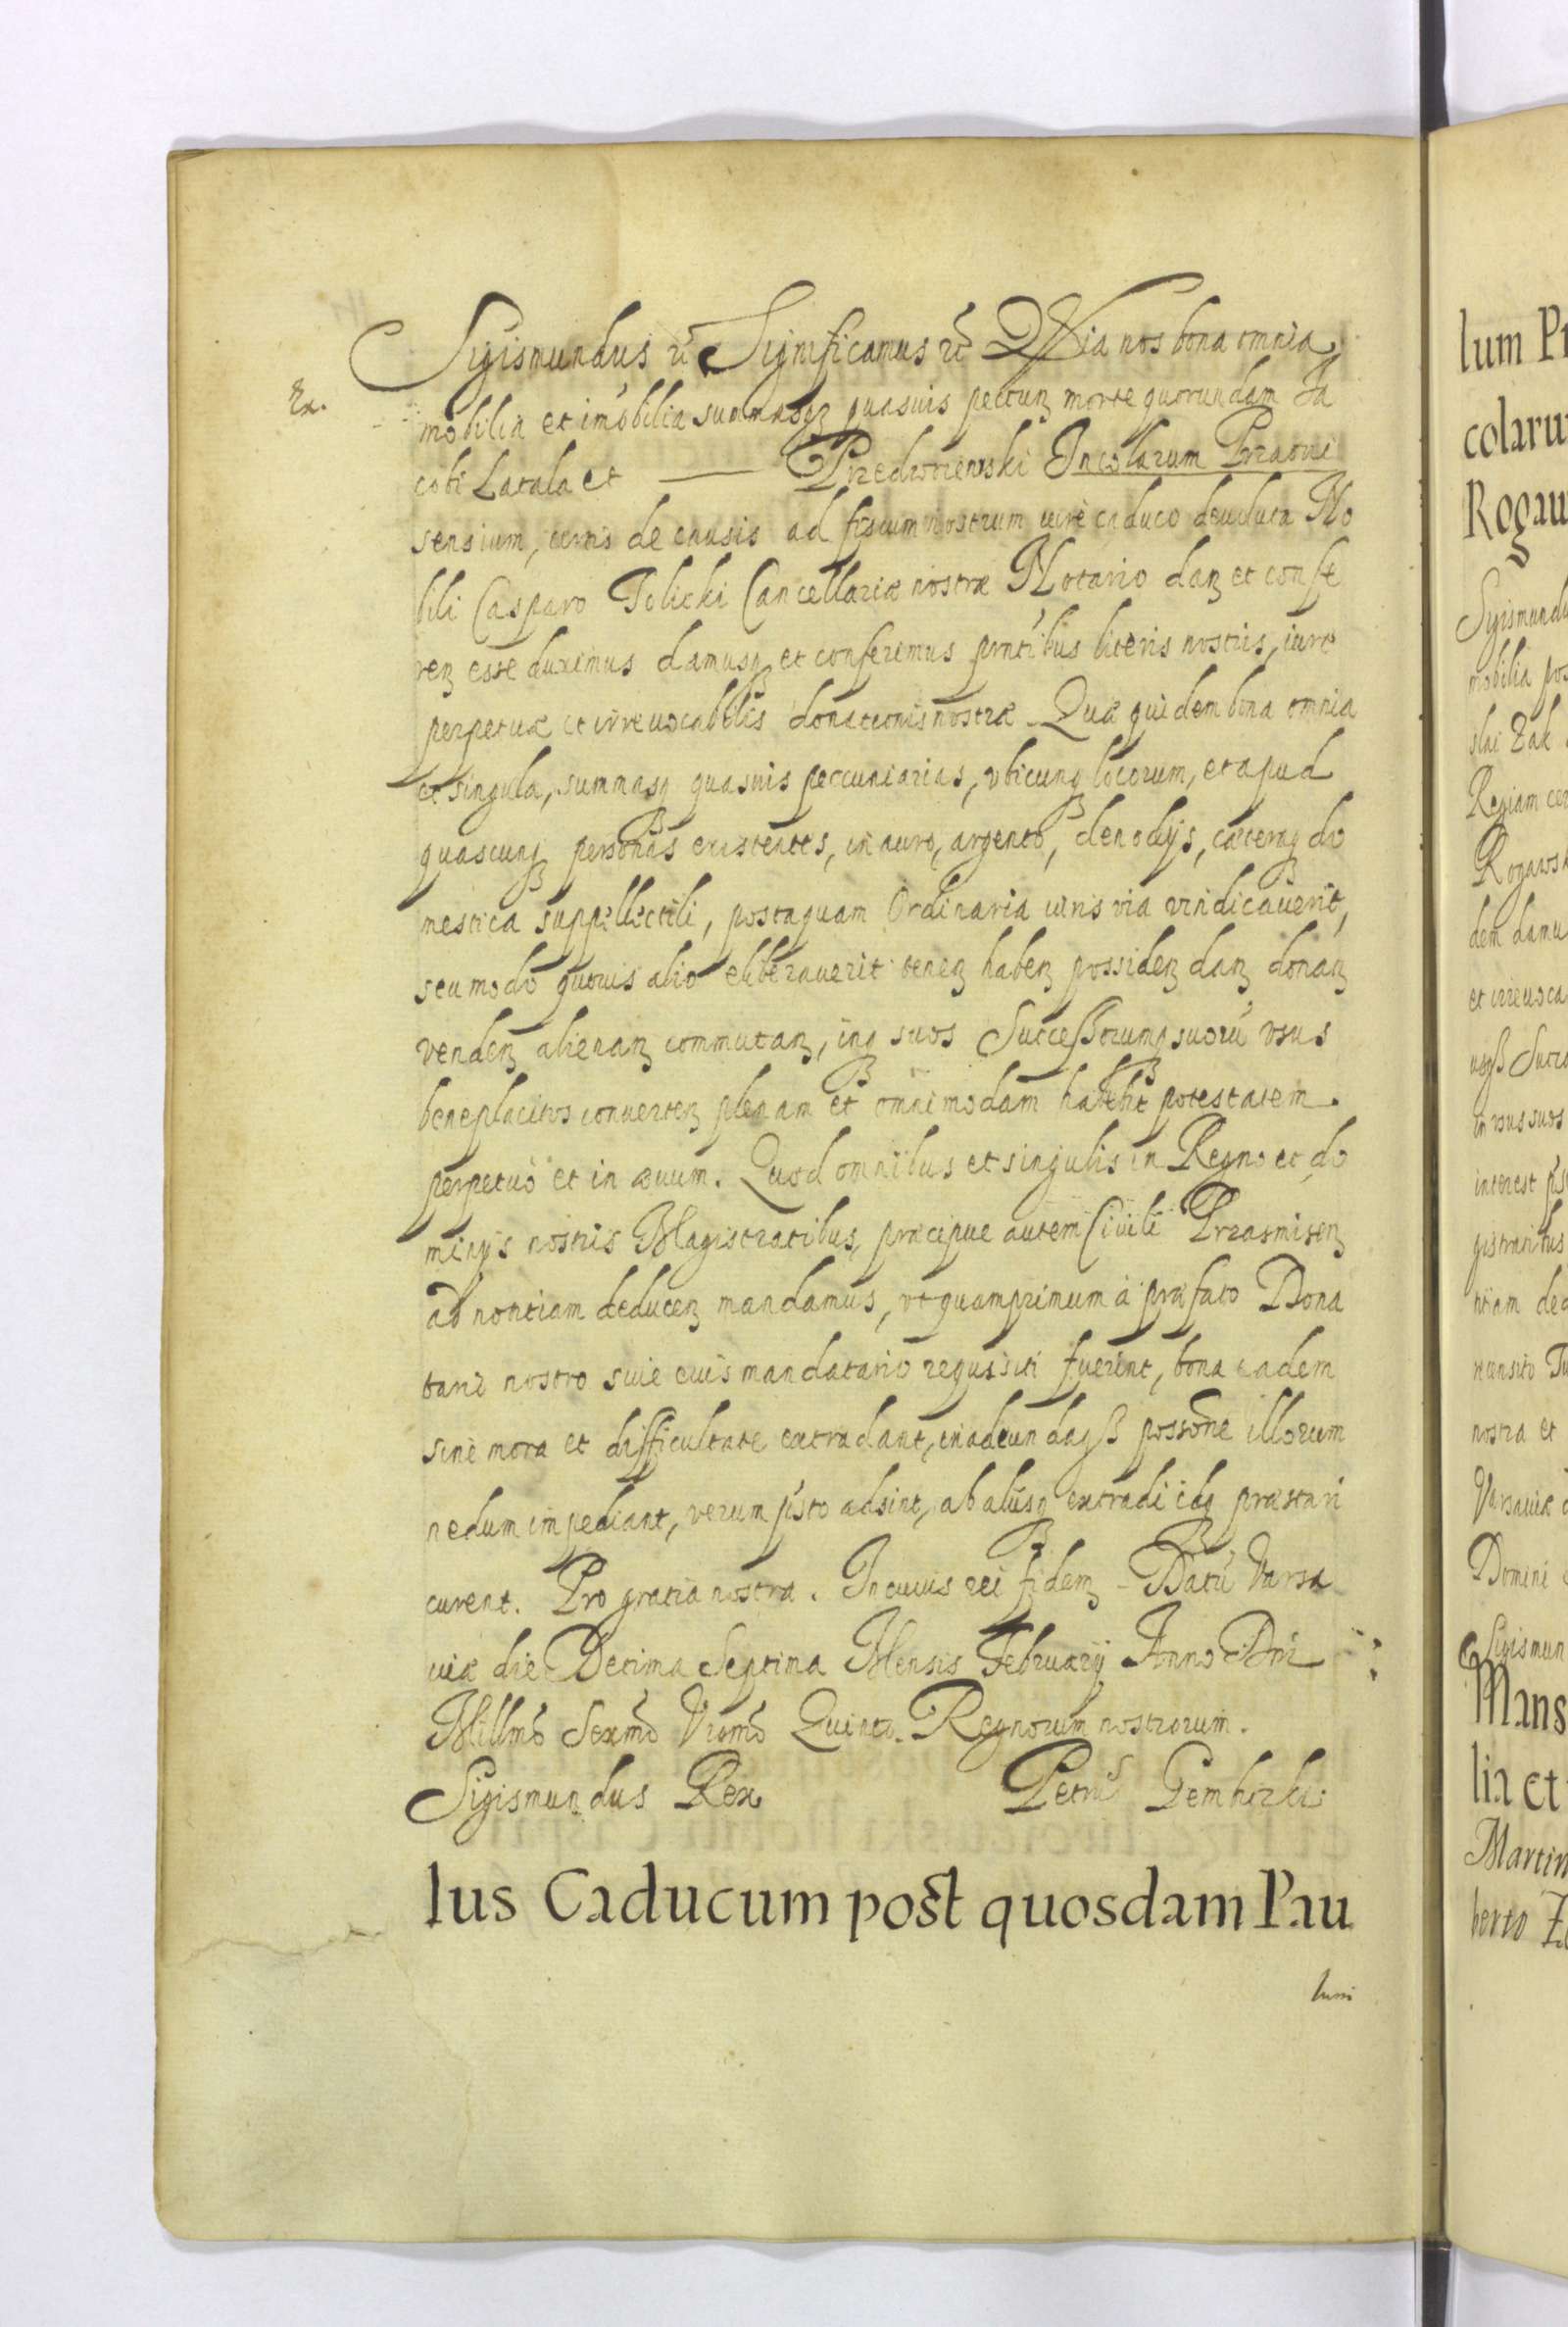 Sigismundus etc Significamus etc Quia nos bona omnia
Ex.
mobilia et im̃obilia summasqꝫ quasuis pectunꝫ morte quorundam Ia
cobi Latala et — Przedworzewski Incolarum Przasni
sensium, certis de causis ad fiscum nostrum iure caduco deuoluta No
bili Casparo Tolicki Cancellariæ nostræ Notario danꝫ et confe
renꝫ esse duximus damusqꝫ et conferimus pnt̃ibus literis nostris, iure
perpetuæ et irreuocabilis donationis nostræ. Quæ quidem bona omnia
et singula, summasqꝫ quasuis peccuniarias, vbicunqꝫ locorum, et apud
quascunqꝫ personas existentes, in auro, argento, clenodijs, cæteraqꝫ do
mestica suppellectili, postaquam Ordinaria iuris via vindicauerit,
seu modo quouis alio eliberauerit tenenꝫ habenꝫ possidenꝫ danꝫ donanꝫ
vendenꝫ alienanꝫ commutanꝫ, inqꝫ suos Successorumqꝫ suorũ vsus
beneplacitos conuertenꝫ plenam et omnimodam habebit potestatem.
perpetuo et in æuum. Quod omnibus et singulis in Regno et do
minijs nostris Magistratibus, præcipue autem Ciuili Przasnisenꝫ
ad notitiam deducenꝫ mandamus, vt quamprimum à præfato Dona
tario nostro siue eius mandatario requisiti fuerint, bona eadem
sine mora et difficultate extradant, in adeundaqꝫ possõne illorum
nedum impediant, verum p̃sto adsint, ab alijsqꝫ extradi idqꝫ præstari
curent. Pro gratia nostra. In cuius rei fidemꝫ Datũ Varsa
uiæ die Decima Septima Mensis February Anno Dni
Millmõ Sexmõ Vigmõ Quinto. Regnorum nostrorum.
Sigismundus Rex Petrus Gembicki
Ius Caducum post quosdam Pau
lum
lum Pr
colaru
Rogaw
Sigismundu
mobilia pos
slai Zak
Regiam cer
Rogawsk
dem damu
et irreuoca
in vsus suos
interest
gistratibus
titiam ded
nostra et
Varsauiæ
Domini
Sigismun
Mans
lia et
Martin
berto